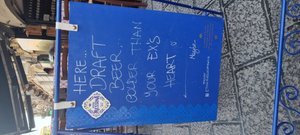 HERE...
DRAFT
BEER...
COLDER THAN
YOUR EX'S
HEART